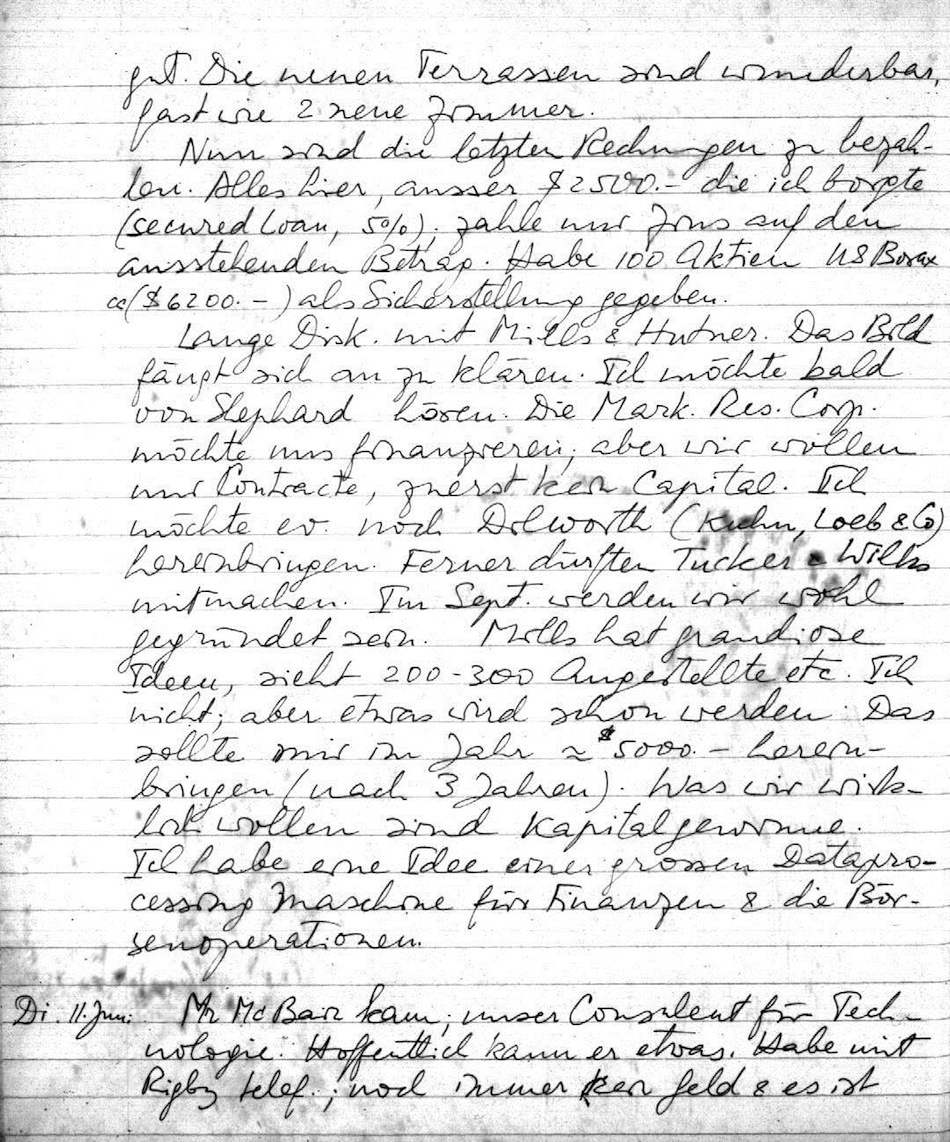 gut. Die neuen Terrassen sind wunderbar,
fast wie 2 neue Zimmer.
Nun sind die letzten Rechnungen zu bezah-
len. Alles hier, ausser $2500.– die ich borgte
(secured Loan, 5%); zahle nur Zins auf den
ausstehenden Betrag. Habe 100 Aktien US Borax
($6200.–) als Sicherstellung gegeben.
Lange Disk. mit Mills & Hutner. Das Bild
fängt sich an zu klären. Ich möchte bald
von Shephard hören. Die Mark. Res. Corp.
möchte uns finanzieren, aber wir wollen
nur Contracte, zuerst kein Capital. Ich
möchte ev. noch Dilworth (Kuhn, Loeb & Co)
hereinbringen. Ferner dürften Tucker & Wilks
mitmachen. Im Sept. werden wir wohl
gegründet sein. Mills hat grandiose
Ideen, sieht 200-300 Angestellte etc. Ich
nicht; aber etwas wird schon werden. Das
sollte mir im Jahr ≈ $5000.– herein-
bringen (nach 3 Jahren). Was wir wirk-
lich wollen sind Kapitalgewinne.
Ich habe eine Idee einer grossen Datapro-
cessing Maschine für Finanzen & die Bör-
senoperationen.
Di. 11. Juni Mr McBain kam, unser Consulent für Tech-
nologie. Hoffentlich kann er etwas. Habe mit
Rigby telef.; noch immer kein Geld & es ist